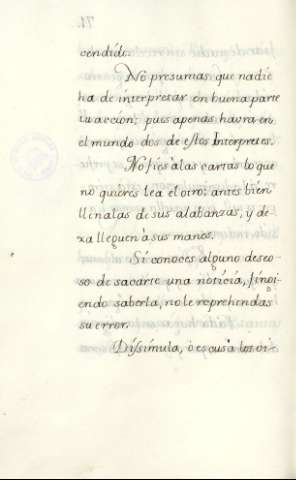 71.
cendido.
No presumas que nadie
ha de interpretar en buena parte
tu accion; pues apenas havra en
el mundo dos de estos Interpretes.
No fies à las cartas lo que
no quieres lea el otro; antes bien
llénalas de sus alabanzas, y de-
xa lleguen à sus manos.
Si conoces alguno deseo-
so de sacarte una noticia, fingi-
endo saberla, no le reprehendas
su error.
Dissimula, ò escusa los vi-